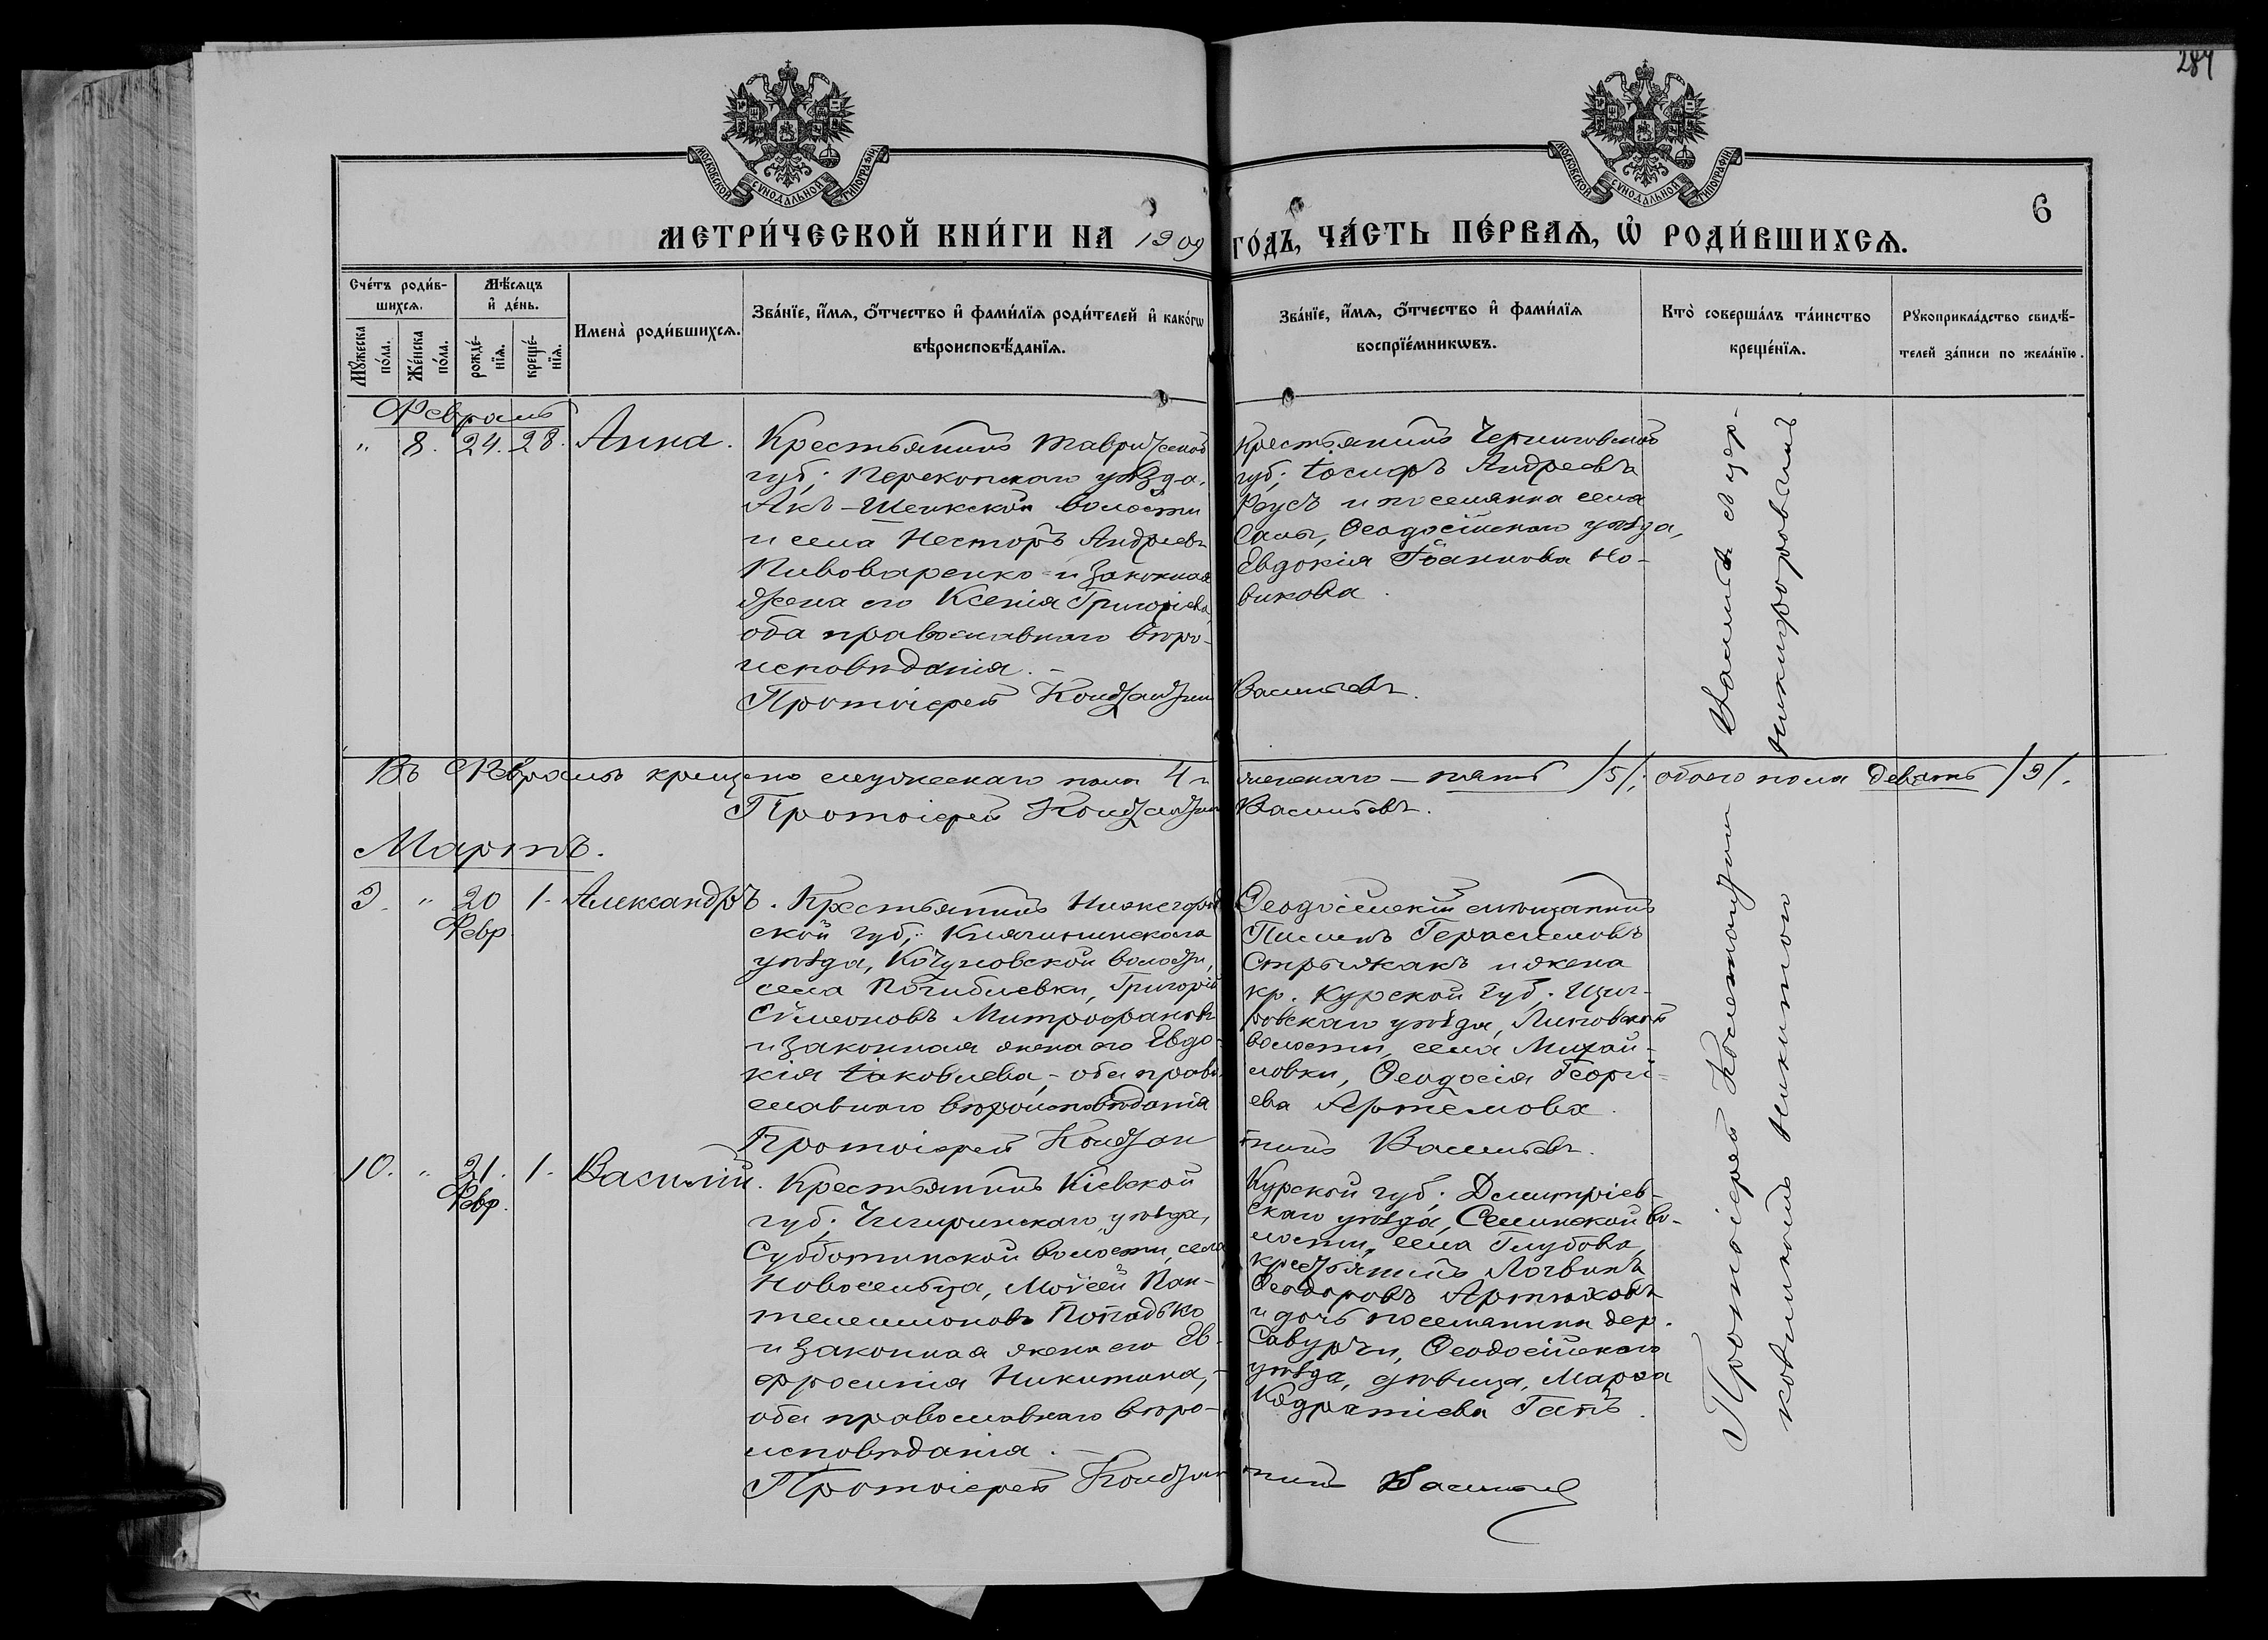 284
МОСКОВСКОЙ СѴНОДАЛЬНОЙ ТИПОГРАФІИ
МОСКОВСКОЙ СѴНОДАЛЬНОЙ ТИПОГРАФІИ
6
МЕТРИ́ЧЕСКОЙ КНИ́ГИ НА 1909 ГО́ДЪ, ЧА́СТЬ ПЕ́РВАѦ, Ѡ҆ РОДИ́ВШИХСѦ.
Сче́тъ роди́в-
шихсѧ.
Мꙋ́жеска
по́ла.
Же́нска
по́ла.
Мѣ́сѧцъ
и҆ де́нь.
рожде́-
нїѧ.
креще́-
нїѧ.
Имена̀ роди́вшихсѧ.
Зва́нїе, и҆́мѧ, ѻ҆́тчество и҆ фами́лїѧ роди́телей и҆ како́гѡ
вѣроисповѣ́данїѧ.
Зва́нїе, и҆́мѧ, ѻ҆́тчество и҆ фами́лїѧ
воспрїе́мникѡвъ.
Кто̀ соверша́лъ та́инство
креще́нїѧ.
Рꙋкоприкла́дство свидѣ́-
телей за́писи по жела́нїю.
Февраль
" 8. 24. 28. Анна.
Крестьянинъ Таврической
губ; Перекопскаго уѣзда.
Акъ-Шеикской волости
и села Несторъ Андреевъ
Пивоваренко и законная
жена его Ксенія Григоріева,
оба православнаго вѣро-
исповѣданія.
Крестьянинъ Черниговской
губ; Іосифъ Андреевъ
Бусъ и поселянка села
Салы, Ѳеодосійскаго уѣзда,
Евдокія Іоаннова Но-
викова.
Протоіерей Константинъ Васильевъ.
Въ Февралѣ крещено мужескаго пола 4 и женскаго - пять /5/; обоего пола девять /9/.
Протоіерей Константинъ Васильевъ.
Мартъ.
9. " 20 1. Александръ.
Февр.
Крестьянинъ Нижегород-
ской губ; Княгининскаго
уѣзда, Кочуновской волости,
села Погибловки, Григорій
Симеоновъ Митрофановъ
и законная жена его Евдо-
кія Іаковлева, - оба право-
славнаго вѣроисповѣданія
Ѳеодосійскій мѣщанинъ
Пименъ Герасимовъ
Стрыжакъ и жена
кр. Курской губ; Щиг-
ровскаго уѣзда, Липовской
волости, села Михай-
ловки, Ѳеодосія Георгі-
ева Артемова.
Протоіерей Константинъ Васильевъ.
10. " 21. 1. Василій.
Февр.
Крестьянинъ Кіевской
губ; Чигиринскаго уѣзда,
Субботинской волости, села
Новосельца, Моисей Пан-
телеимоновъ Попадько
и законная жена его Ев-
фросинія Никитина, -
оба православнаго вѣро-
исповѣданія.
Курской губ; Дмитріев-
скаго уѣзда, Селинской во-
лости, села Глубова,
крестьянинъ Логвинъ
Ѳеодоровъ Артюховъ
и дочь поселянина дер.
Савурчи, Ѳеодосійскаго
уѣзда, дѣвица, Марѳа
Кодратіева Гапъ.
Протоіерей Константинъ Васильевъ
Протоіерей Константинъ Васильевъ съ пса-